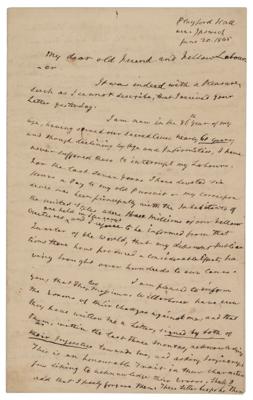 Playford Hall
near Ipswich
June 20. 1845
My dear old Friend and Fellow Labour-
-er
It was indeed with a Pleasure,
such as I cannot describe, that I received your
Letter yesterday.
I am now in the 86th year of my
age, having served our Sacred Cause nearly 60 years,
and though declining by Age and Infirmities, I have
never suffered these to interrupt my Labours.
For the last seven years I have devoted six
Hours a Day to my old Pursuit or my correspon-
dence has been principally with the Inhabitants of
the United States where three Millions of our fellow
Creatures are held in Slavery. I rejoice to be informed from that
Quarter of the World, that my different Publica-
tions there have produced a considerable effect, ha-
ving brought over hundreds to our cause.
I am pleased to inform
you, that the two Wilberforces have
the
of their charges against me, and that
they have written me a Letter, signed by both of
them, within the last three Months, acknowledging
their Injustice towards me, and asking forgiveness
This is an honourable Trait in their character
for liking to acknowledge their Errors. I
add that I freely forgave them. Their Letter